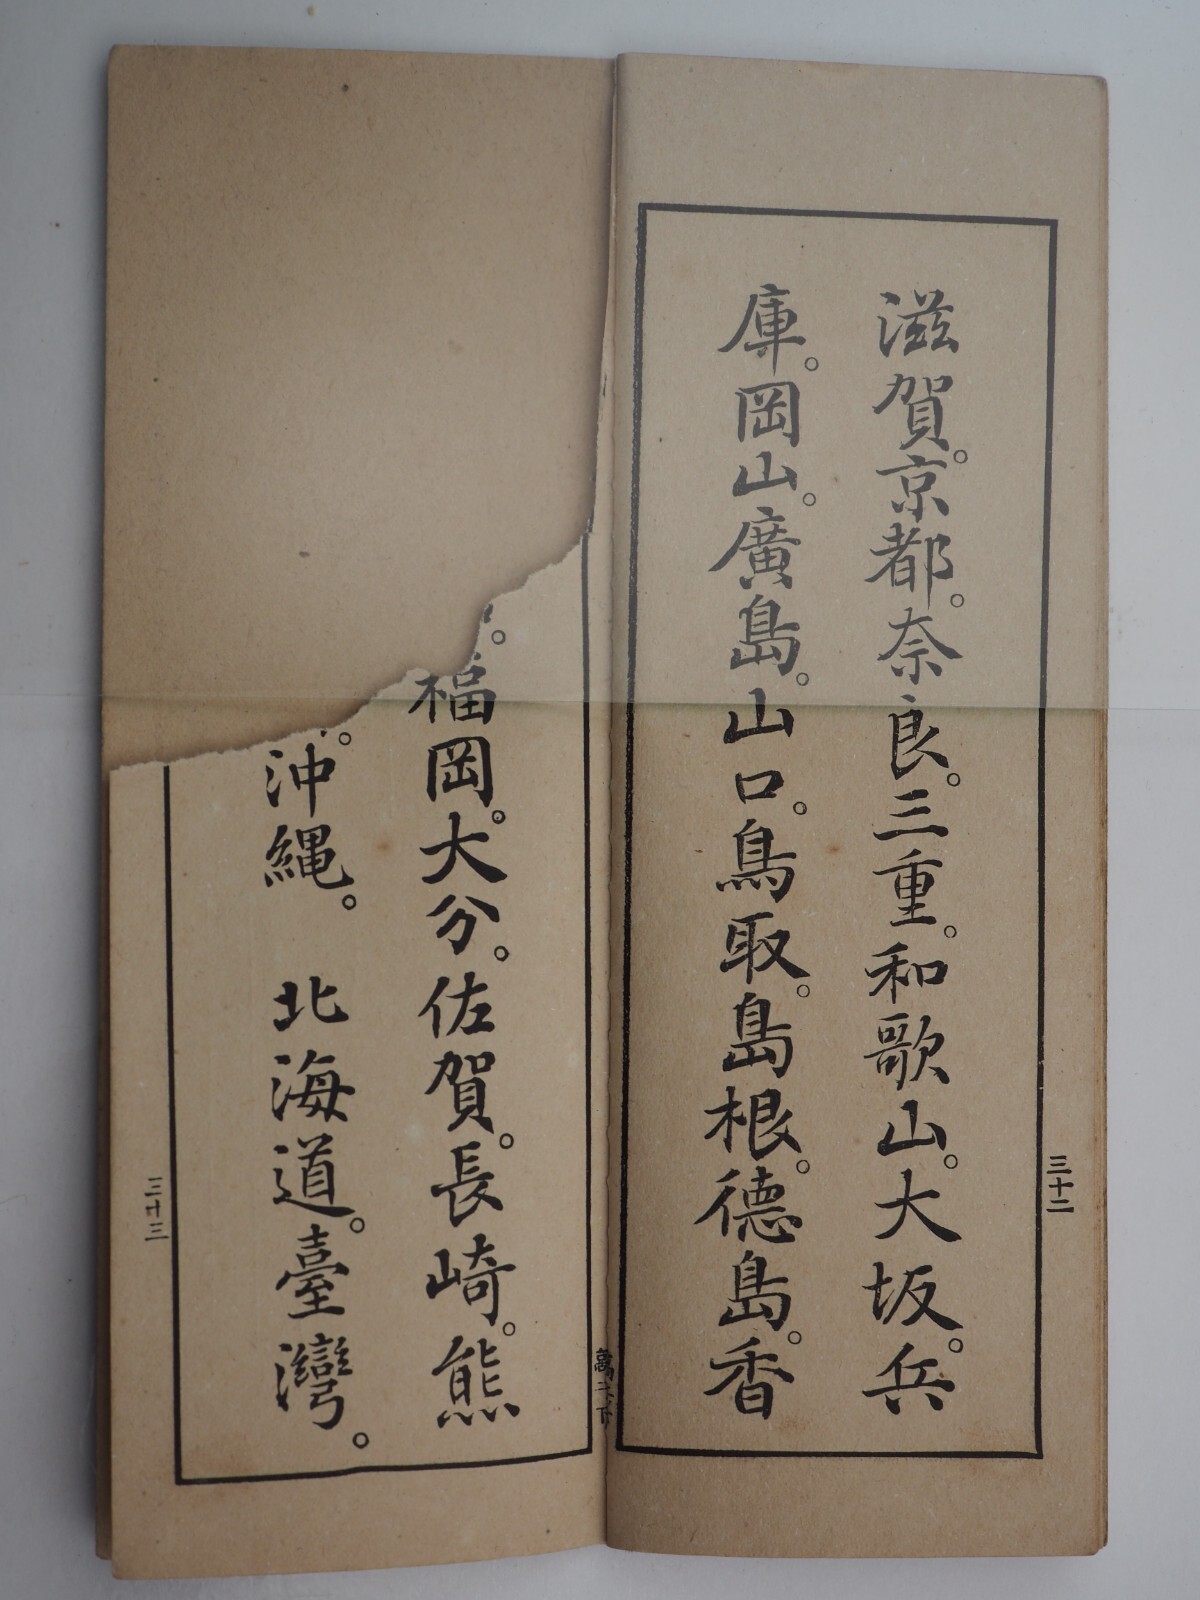 滋賀。京都。奈良。三重。和歌山。大坂。兵
庫。岡山。廣島。山口。鳥取。島根。德島。香
三十二
。福岡。大分。佐賀。長崎。熊
。沖縄。 北海道。臺灣。
三十三